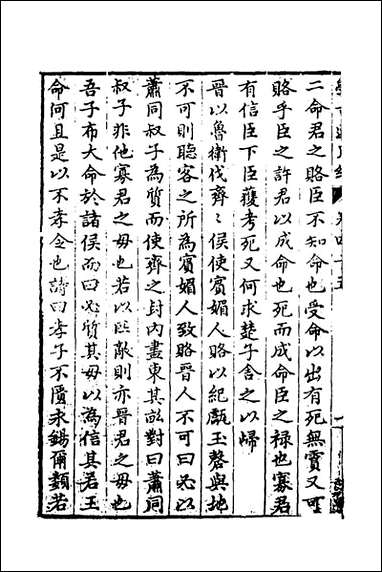 卷四十五
二命君之賂臣不知命也受命以出有死無霣又可
賂乎臣之許君以成命也死而成命臣之祿也寡君
有信臣下臣獲考死又何求楚子舍之以歸
晉以魯衛伐齊〻侯使賓媚人賂以紀甗玉磬與地
不可則聽客之所為賓媚人致賂晉人不可曰必以
蕭同叔子為質而使齊之封內盡東其畝對曰蕭同
叔子非他寡君之母也若以匹敵則亦晉君之母也
吾子布大命於諸侯而曰必質其母以為信其若王
命何且是以不孝令也詩曰孝子不匱永錫爾類若